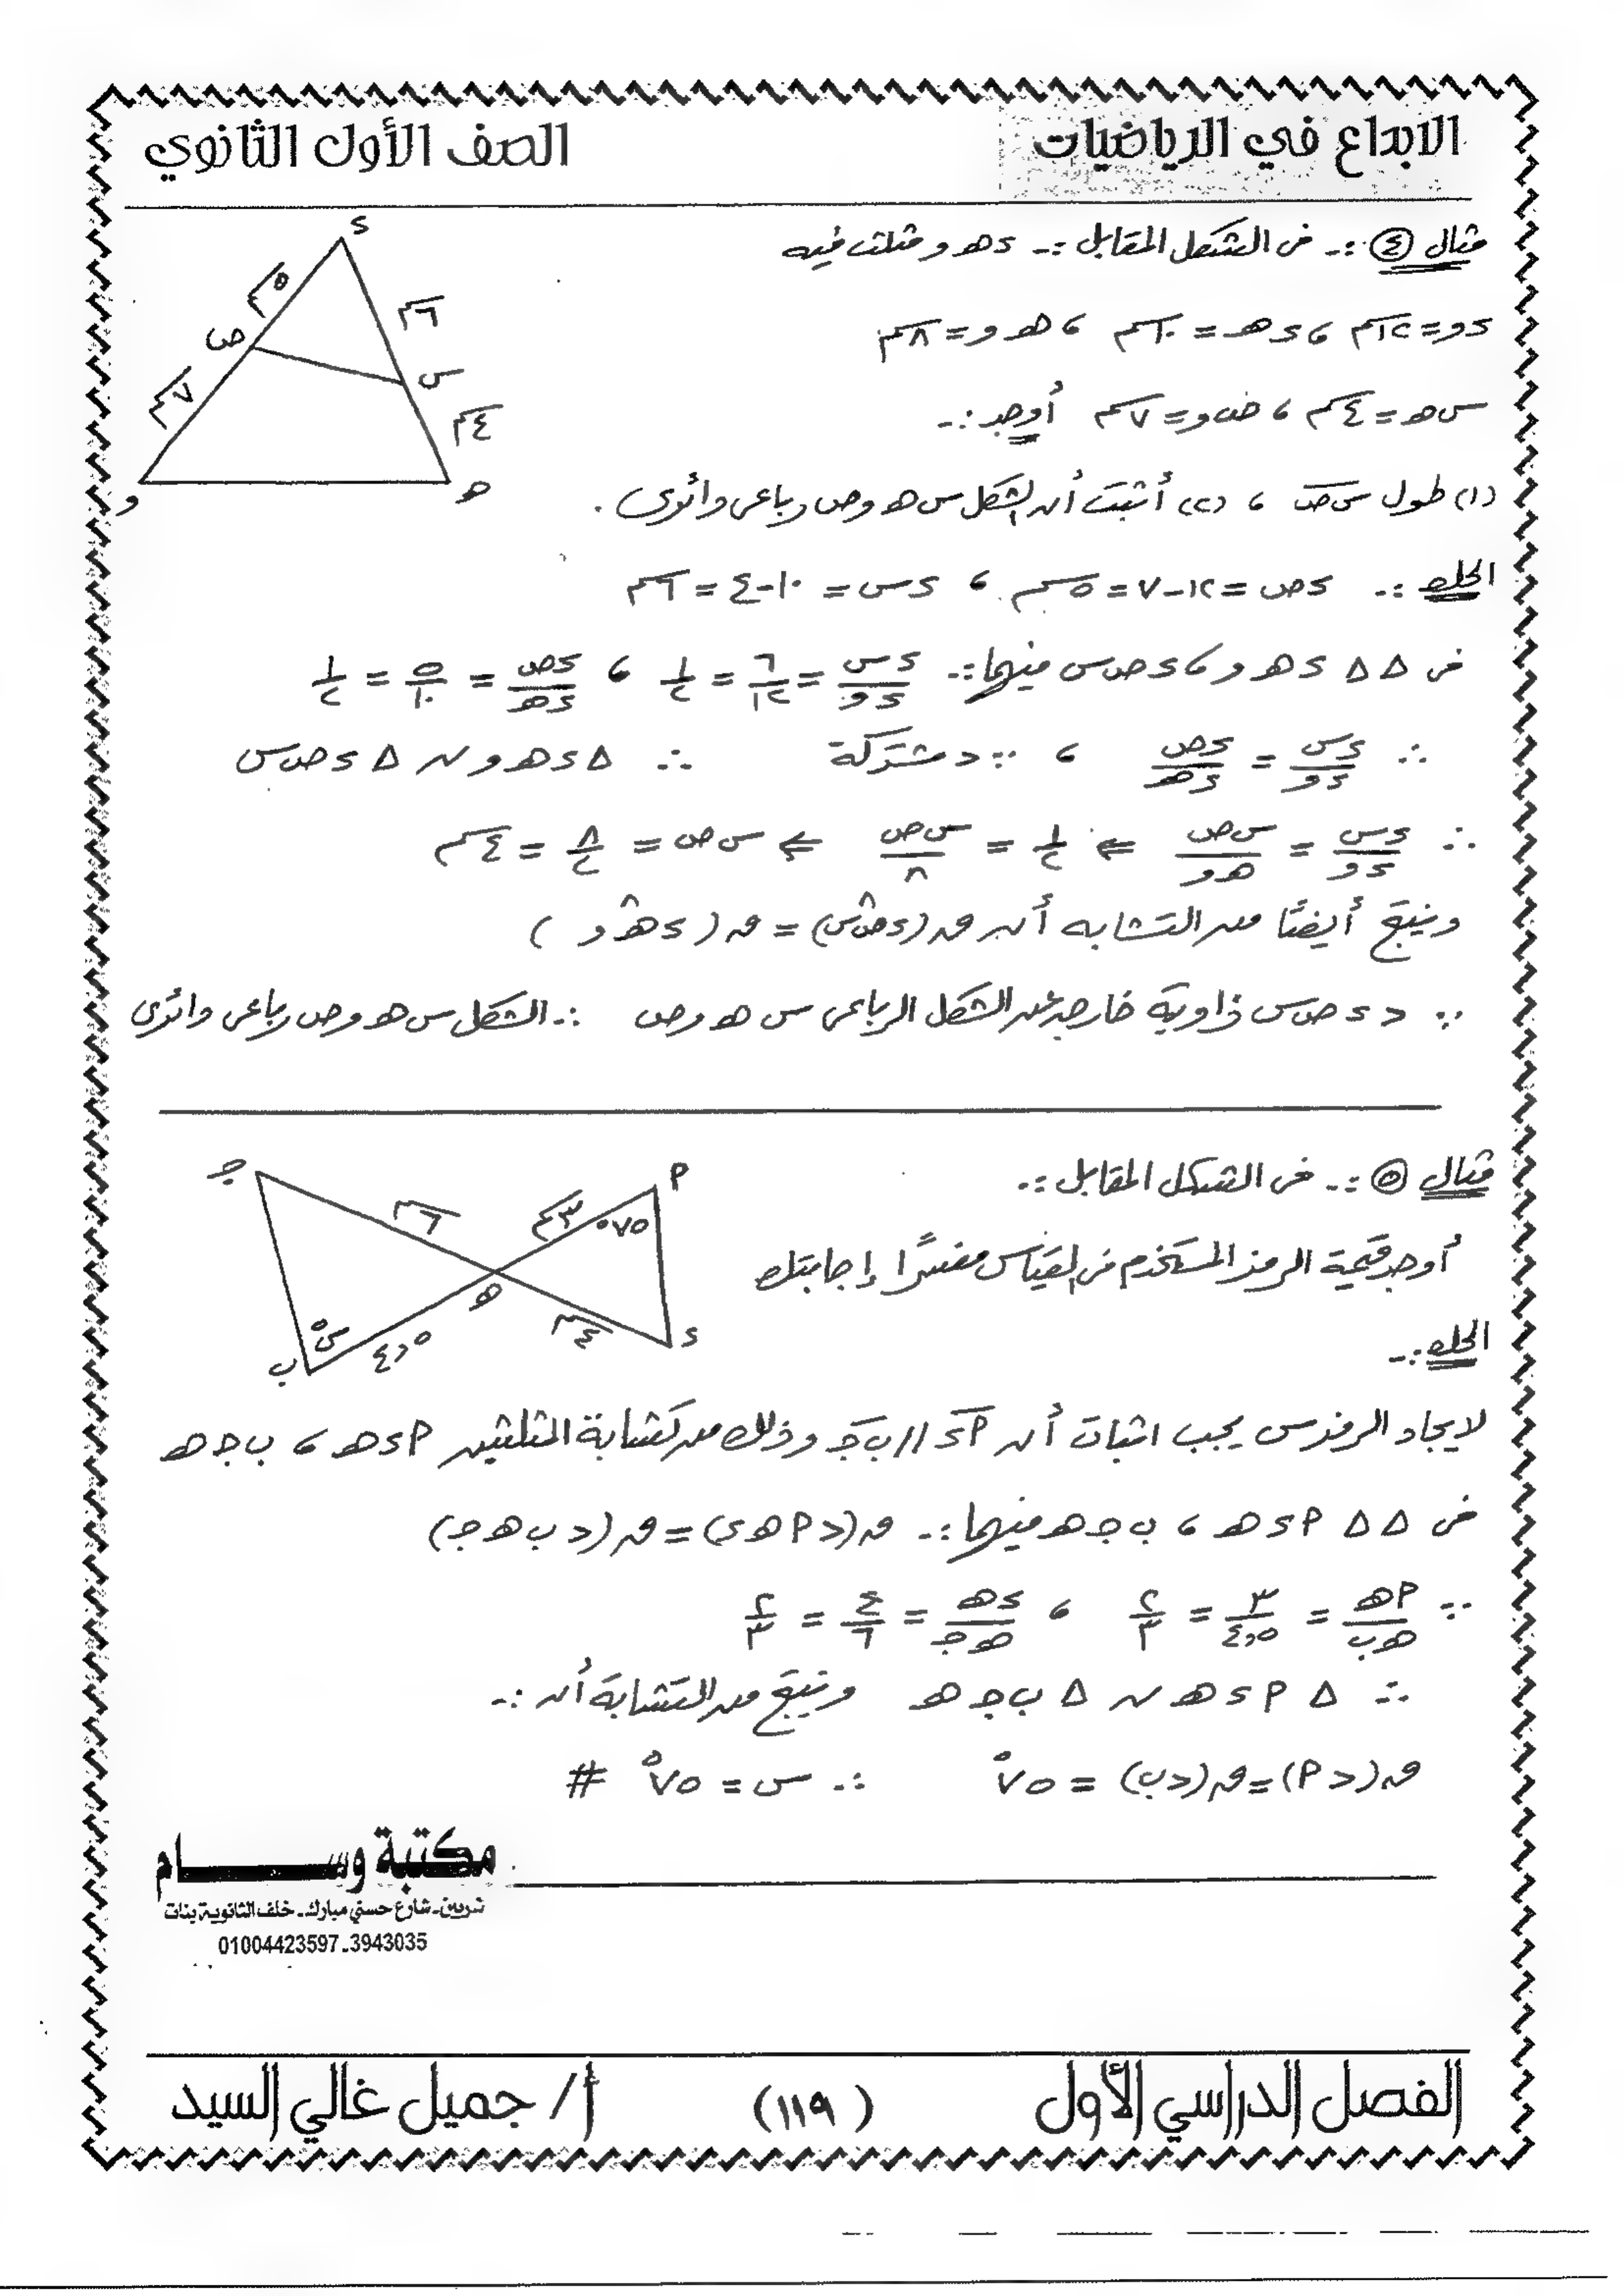 الابداع في الرياضيات
الصف الأول الثانوي
مثال (٤) :- فى الشكل المقابل :- ء هـ و مثلث فيه
ء و = ١٢ سم ، ء هـ = ١٠ سم ، هـ و = ٨ سم
س هـ = ٤ سم ، ص و = ٧ سم أوجد :-
(١) طول س ص ، (٢) أثبت أن الشكل س هـ و ص رباعى دائرى .
الحل :- ء ص = ١٢ - ٧ = ٥ سم ، ء س = ١٠ - ٤ = ٦ سم
فى Δ Δ ء هـ و ، ء ص س فيهما :- ء س / ء و = ٦ / ١٢ = ١ / ٢ ، ء ص / ء هـ = ٥ / ١٠ = ١ / ٢
∴ ء س / ء و = ء ص / ء هـ ، ∵ د مشتركة ∴ Δ ء هـ و ~ Δ ء ص س
∴ ء س / ء و = س ص / هـ و ⇐ ١ / ٢ = س ص / ٨ ⇐ س ص = ٨ / ٢ = ٤ سم
وينتج أيضًا من التشابه أن ق (ء ص س) = ق (ء هـ و)
∵ د ء ص س زاوية خارجه عن الشكل الرباعى س هـ و ص ∴ الشكل س هـ و ص رباعى دائرى
ء
٥ سم
٦ سم
ص
س
٧ سم
٤ سم
و
هـ
مثال (٥) :- فى الشكل المقابل :-
أوجد قيمة الرمز المستخدم فى القياس مفسرًا إجابتك
الحل :-
جـ
٦ سم
٣ سم
٧٥°
P
هـ
س°
٤,٥
٤ سم
ء
ب
لايجاد الرمز س يجب اثبات أن P ء // ب جـ وذلك من تشابة المثلثين P ء هـ ، ب جـ هـ
فى Δ Δ P ء هـ ، ب جـ هـ فيهما :- ق (د P هـ ء) = ق (د ب هـ جـ)
∵ P هـ / هـ ب = ٣ / ٤,٥ = ٢ / ٣ ، ء هـ / هـ جـ = ٤ / ٦ = ٢ / ٣
∴ Δ P ء هـ ~ Δ ب جـ هـ وينتج من التشابة أن :-
ق (د P) = ق (د ب) = ٧٥° ∴ س = ٧٥° #
مكتبة وسام
شربين - شارع حسني مبارك - خلف الثانوية بنات
01004423597 - 3943035
الفصل الدراسي الأول
( ١١٩ )
أ / جميل غالي السيد